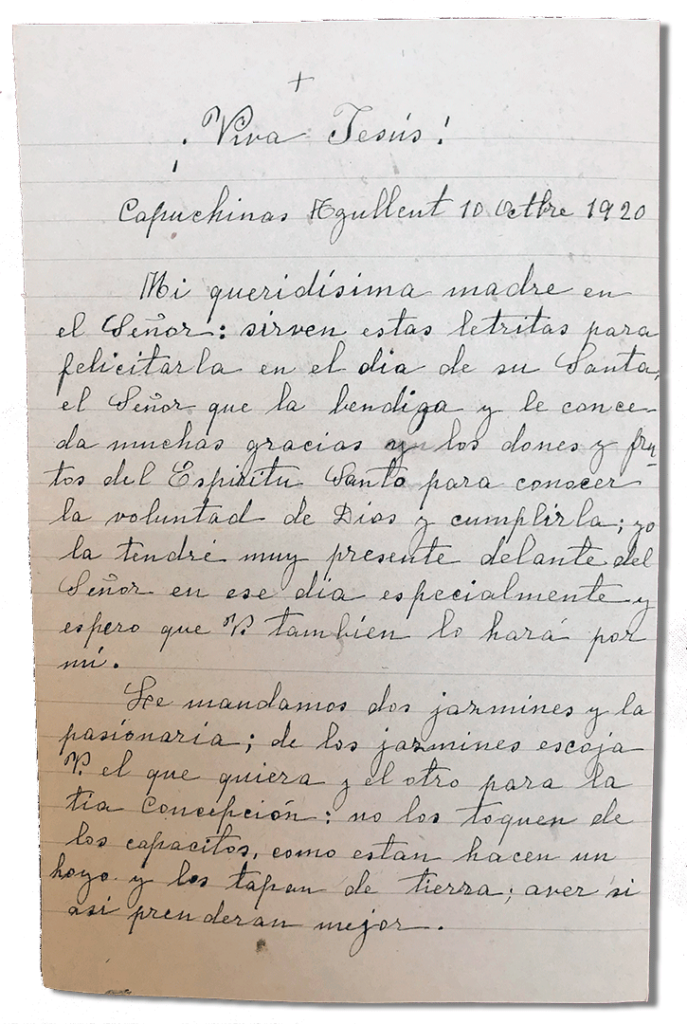 +
¡Viva Jesús!
Capuchinas Agullent 10 Octbre 1920
Mi queridísima madre en
el Señor: sirven estas letritas para
felicitarla en el dia de su Santa,
el Señor que la bendiga y le conce-
da muchas gracias y los dones y fru-
tos del Espiritu Santo para conocer
la voluntad de Dios y cumplirla; yo
la tendré muy presente delante del
Señor en ese dia especialmente y
espero que V. tambien lo hará por
mi.
Le mandamos dos jazmines y la
pasionaria; de los jazmines escoja
V. el que quiera y el otro para la
tia Concepción: no los toquen de
los capacitos, como estan hacen un
hoyo y los tapan de tierra; aver si
asi prenderan mejor.